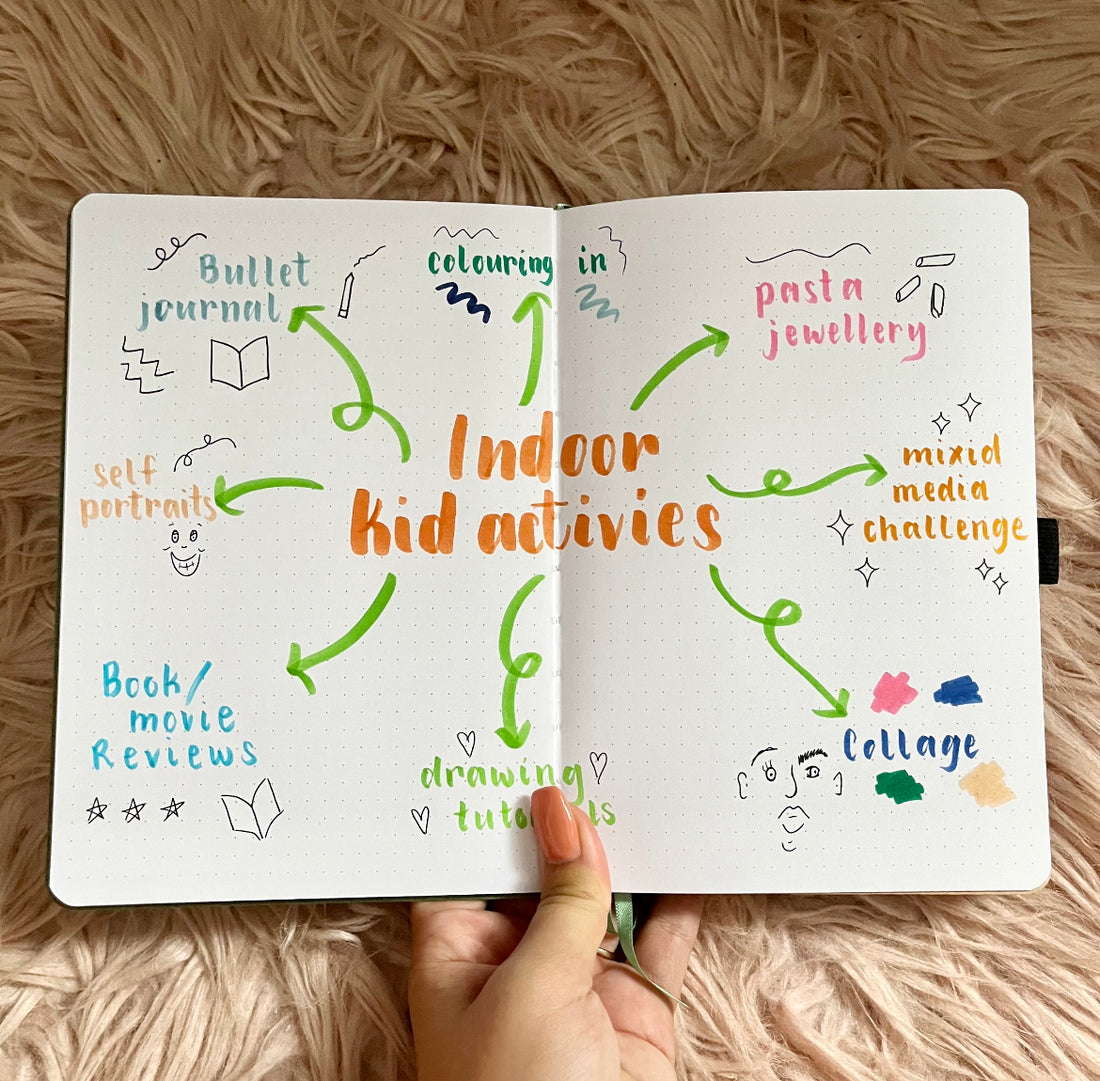 Bullet
journal
colouring in
pasta
jewellery
Indoor
Kid activies
self
portraits
mixid
media
challenge
Book/
movie
Reviews
drawing
Collage